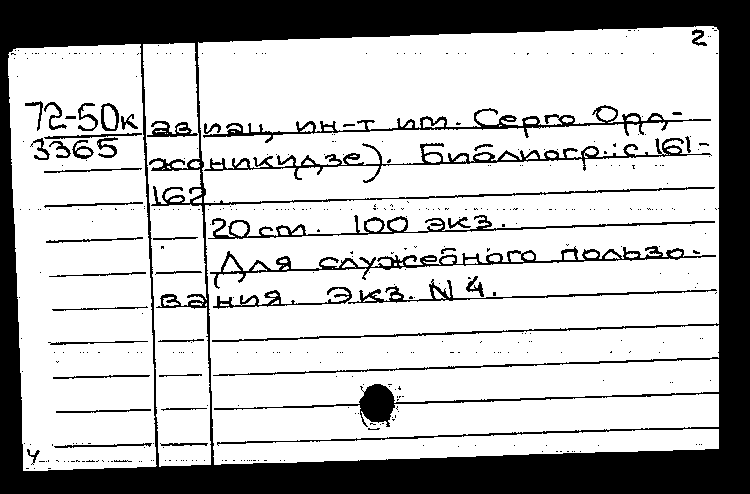 2
72-50к
3365
авиац. ин-т им. Серго Орд-
жоникидзе). Библиогр.: с. 161-
162.
20 см. 100 экз.
Для служебного пользо-
вания. Экз. N 4.
У